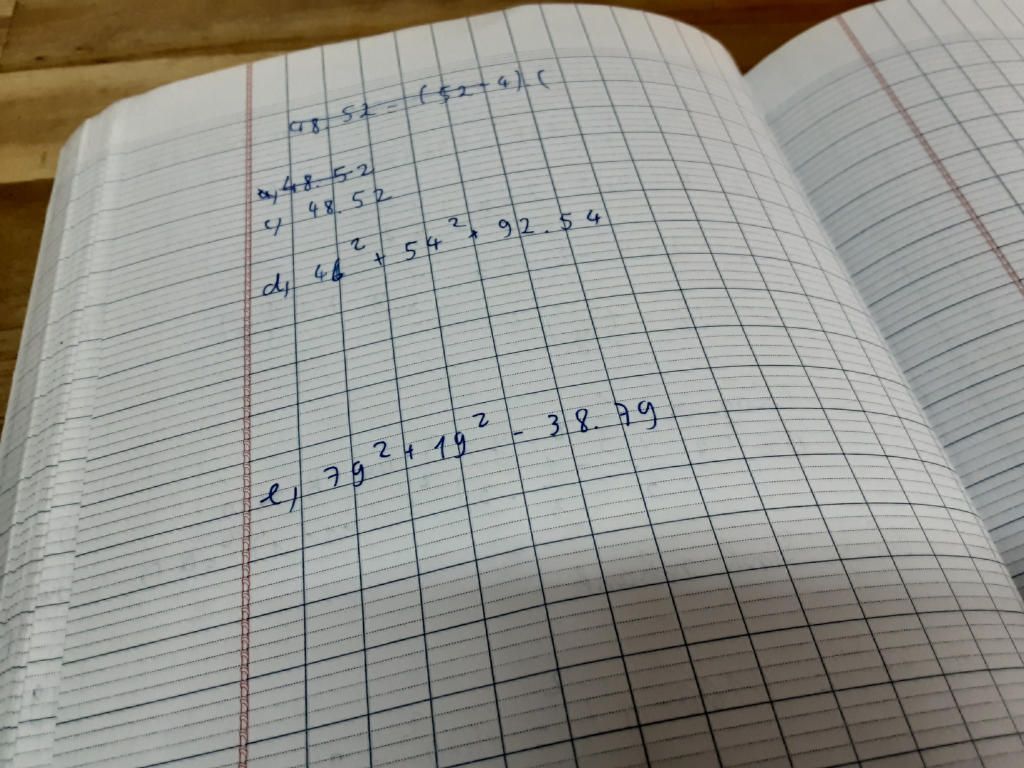 48.52 = (52-4)(
a, 48.52
c, 48.52
d, 46² + 54² + 92.54
e, 79² + 19² - 38.79